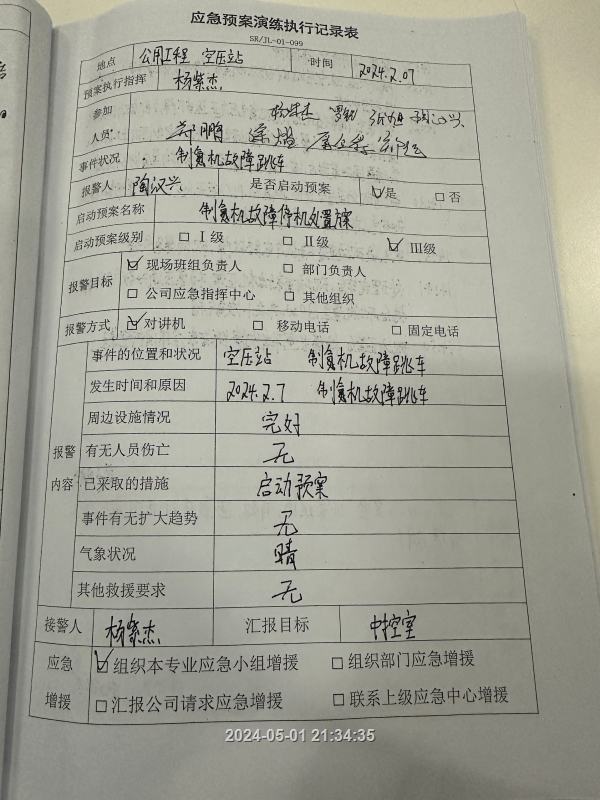 应急预案演练执行记录表
SR/JL-01-099
地点 公用工程 空压站 时间 2024.2.07
预案执行指挥 杨紫杰
参加
人员
事件状况 制氮机故障跳车
报警人 陶汉兴 是否启动预案 ☑是 □否
启动预案名称 制氮机故障停机处置方案
启动预案级别 □Ⅰ级 □Ⅱ级 ☑Ⅲ级
报警目标 ☑现场班组负责人 □部门负责人
□公司应急指挥中心 □其他组织
报警方式 ☑对讲机 □移动电话 □固定电话
报警内容
事件的位置和状况 空压站 制氮机故障跳车
发生时间和原因 2024.2.7 制氮机故障跳车
周边设施情况 完好
有无人员伤亡 无
已采取的措施 启动预案
事件有无扩大趋势 无
气象状况 晴
其他救援要求 无
接警人 杨紫杰 汇报目标 中控室
应急 ☑组织本专业应急小组增援 □组织部门应急增援
增援 □汇报公司请求应急增援 □联系上级应急中心增援
2024-05-01 21:34:35